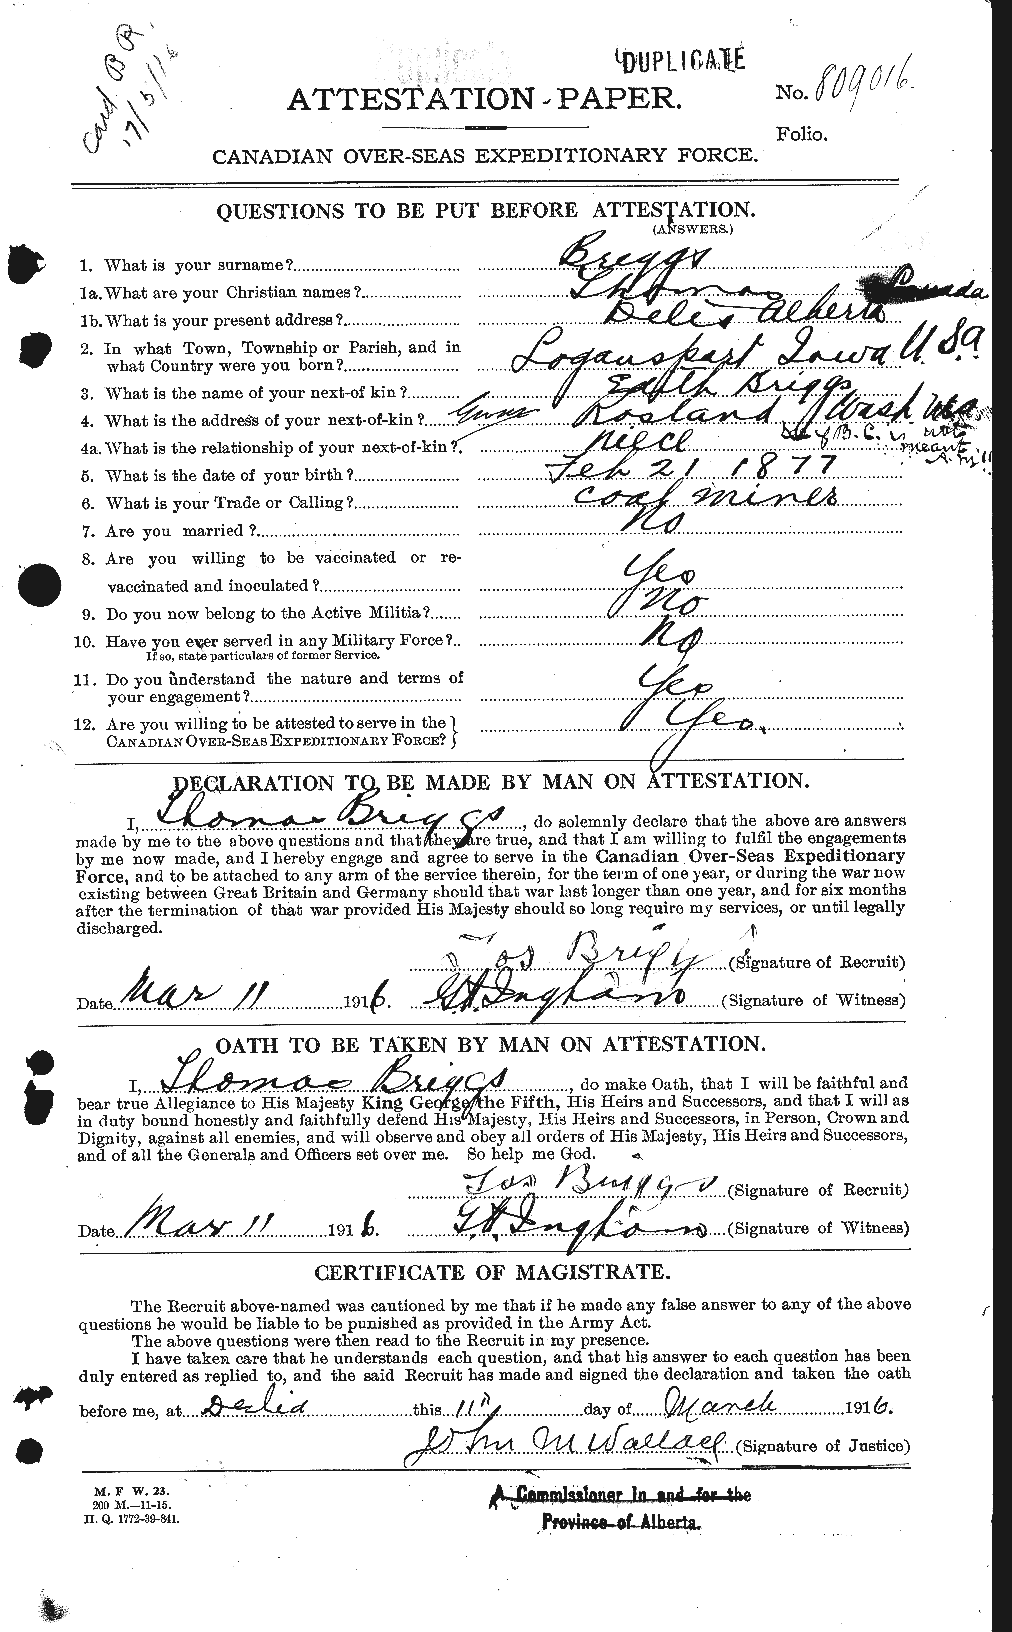 Card B R.
17/5/16
DUPLICATE
ATTESTATION-PAPER.
No. 809016.
Folio.
CANADIAN OVER-SEAS EXPEDITIONARY FORCE.
QUESTIONS TO BE PUT BEFORE ATTESTATION.
(ANSWERS.)
1. What is your surname? Briggs
1a. What are your Christian names? Thomas
1b. What is your present address? Delis Alberta Canada
2. In what Town, Township or Parish, and in
what Country were you born? Loganspart Iowa U.S.A.
3. What is the name of your next-of kin? Edith Briggs
4. What is the address of your next-of-kin? Rosland Wash. USA
4a. What is the relationship of your next-of-kin? niece of B.C. is not meant
5. What is the date of your birth? Feb 21 1877
6. What is your Trade or Calling? coal miner
7. Are you married? No
8. Are you willing to be vaccinated or re-
vaccinated and inoculated? Yes
9. Do you now belong to the Active Militia? No
10. Have you ever served in any Military Force? No
If so, state particulars of former Service.
11. Do you understand the nature and terms of
your engagement? Yes
12. Are you willing to be attested to serve in the
CANADIAN OVER-SEAS EXPEDITIONARY FORCE? Yes.
DECLARATION TO BE MADE BY MAN ON ATTESTATION.
I, Thomas Briggs, do solemnly declare that the above are answers
made by me to the above questions and that they are true, and that I am willing to fulfil the engagements
by me now made, and I hereby engage and agree to serve in the Canadian Over-Seas Expeditionary
Force, and to be attached to any arm of the service therein, for the term of one year, or during the war now
existing between Great Britain and Germany should that war last longer than one year, and for six months
after the termination of that war provided His Majesty should so long require my services, or until legally
discharged.
Tos Brigg (Signature of Recruit)
Date Mar 11 1916. G.H. Ingham (Signature of Witness)
OATH TO BE TAKEN BY MAN ON ATTESTATION.
I, Thomas Briggs, do make Oath, that I will be faithful and
bear true Allegiance to His Majesty King George the Fifth, His Heirs and Successors, and that I will as
in duty bound honestly and faithfully defend His Majesty, His Heirs and Successors, in Person, Crown and
Dignity, against all enemies, and will observe and obey all orders of His Majesty, His Heirs and Successors,
and of all the Generals and Officers set over me. So help me God.
Tos Briggs (Signature of Recruit)
Date Mar 11 1916. G.H. Ingham (Signature of Witness)
CERTIFICATE OF MAGISTRATE.
The Recruit above-named was cautioned by me that if he made any false answer to any of the above
questions he would be liable to be punished as provided in the Army Act.
The above questions were then read to the Recruit in my presence.
I have taken care that he understands each question, and that his answer to each question has been
duly entered as replied to, and the said Recruit has made and signed the declaration and taken the oath
before me, at Deslid this 11th day of March 1916.
John M Wallace (Signature of Justice)
M. F. W. 23.
200 M.—11-15.
H. Q. 1772-39-841.
A Commissioner in and for the
Province of Alberta.